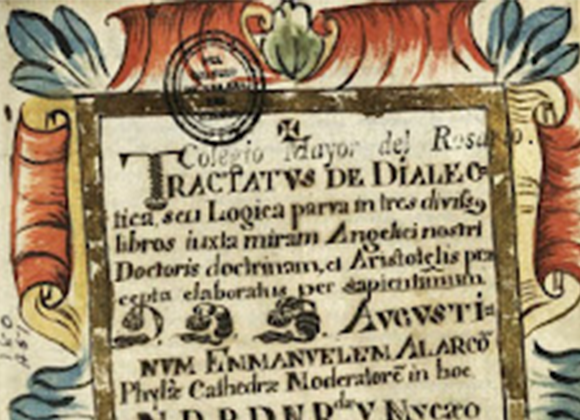 Colegio Mayor del Rosario.
TRACTATVS DE DIALEC-
tica, seu Logica parva in tres divisq
libros iuxta miram Angelici nostri
Doctoris doctrinam, et Aristotelis præ
cepta elaboratus per sapientissimum.
D. D. D. AVGVSTI-
NVM EMMANVELEM ALARCO
Phylæ Cathedræ Moderatorē in hoc